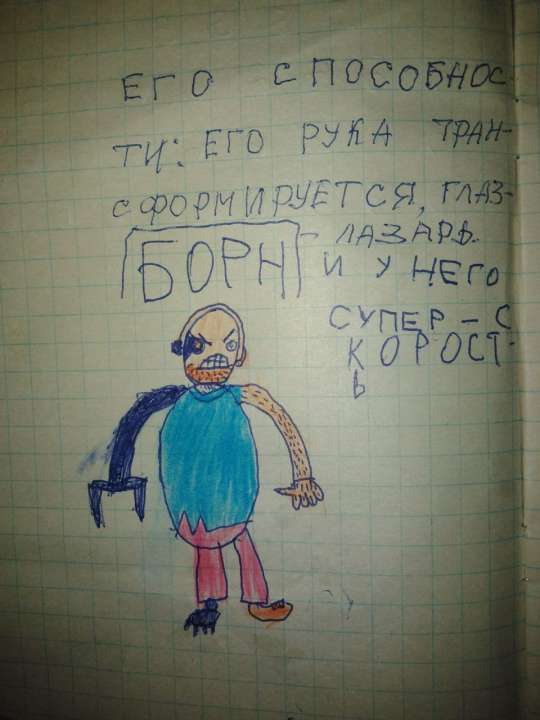 ЕГО СПОСОБНОС-
ТИ: ЕГО РУКА ТРАН-
СФОРМИРУЕТСЯ, ГЛАЗ-
БОРН
-ЛАЗАРЬ.
И У НЕГО
СУПЕР-С
КОРОСТ-
Ь